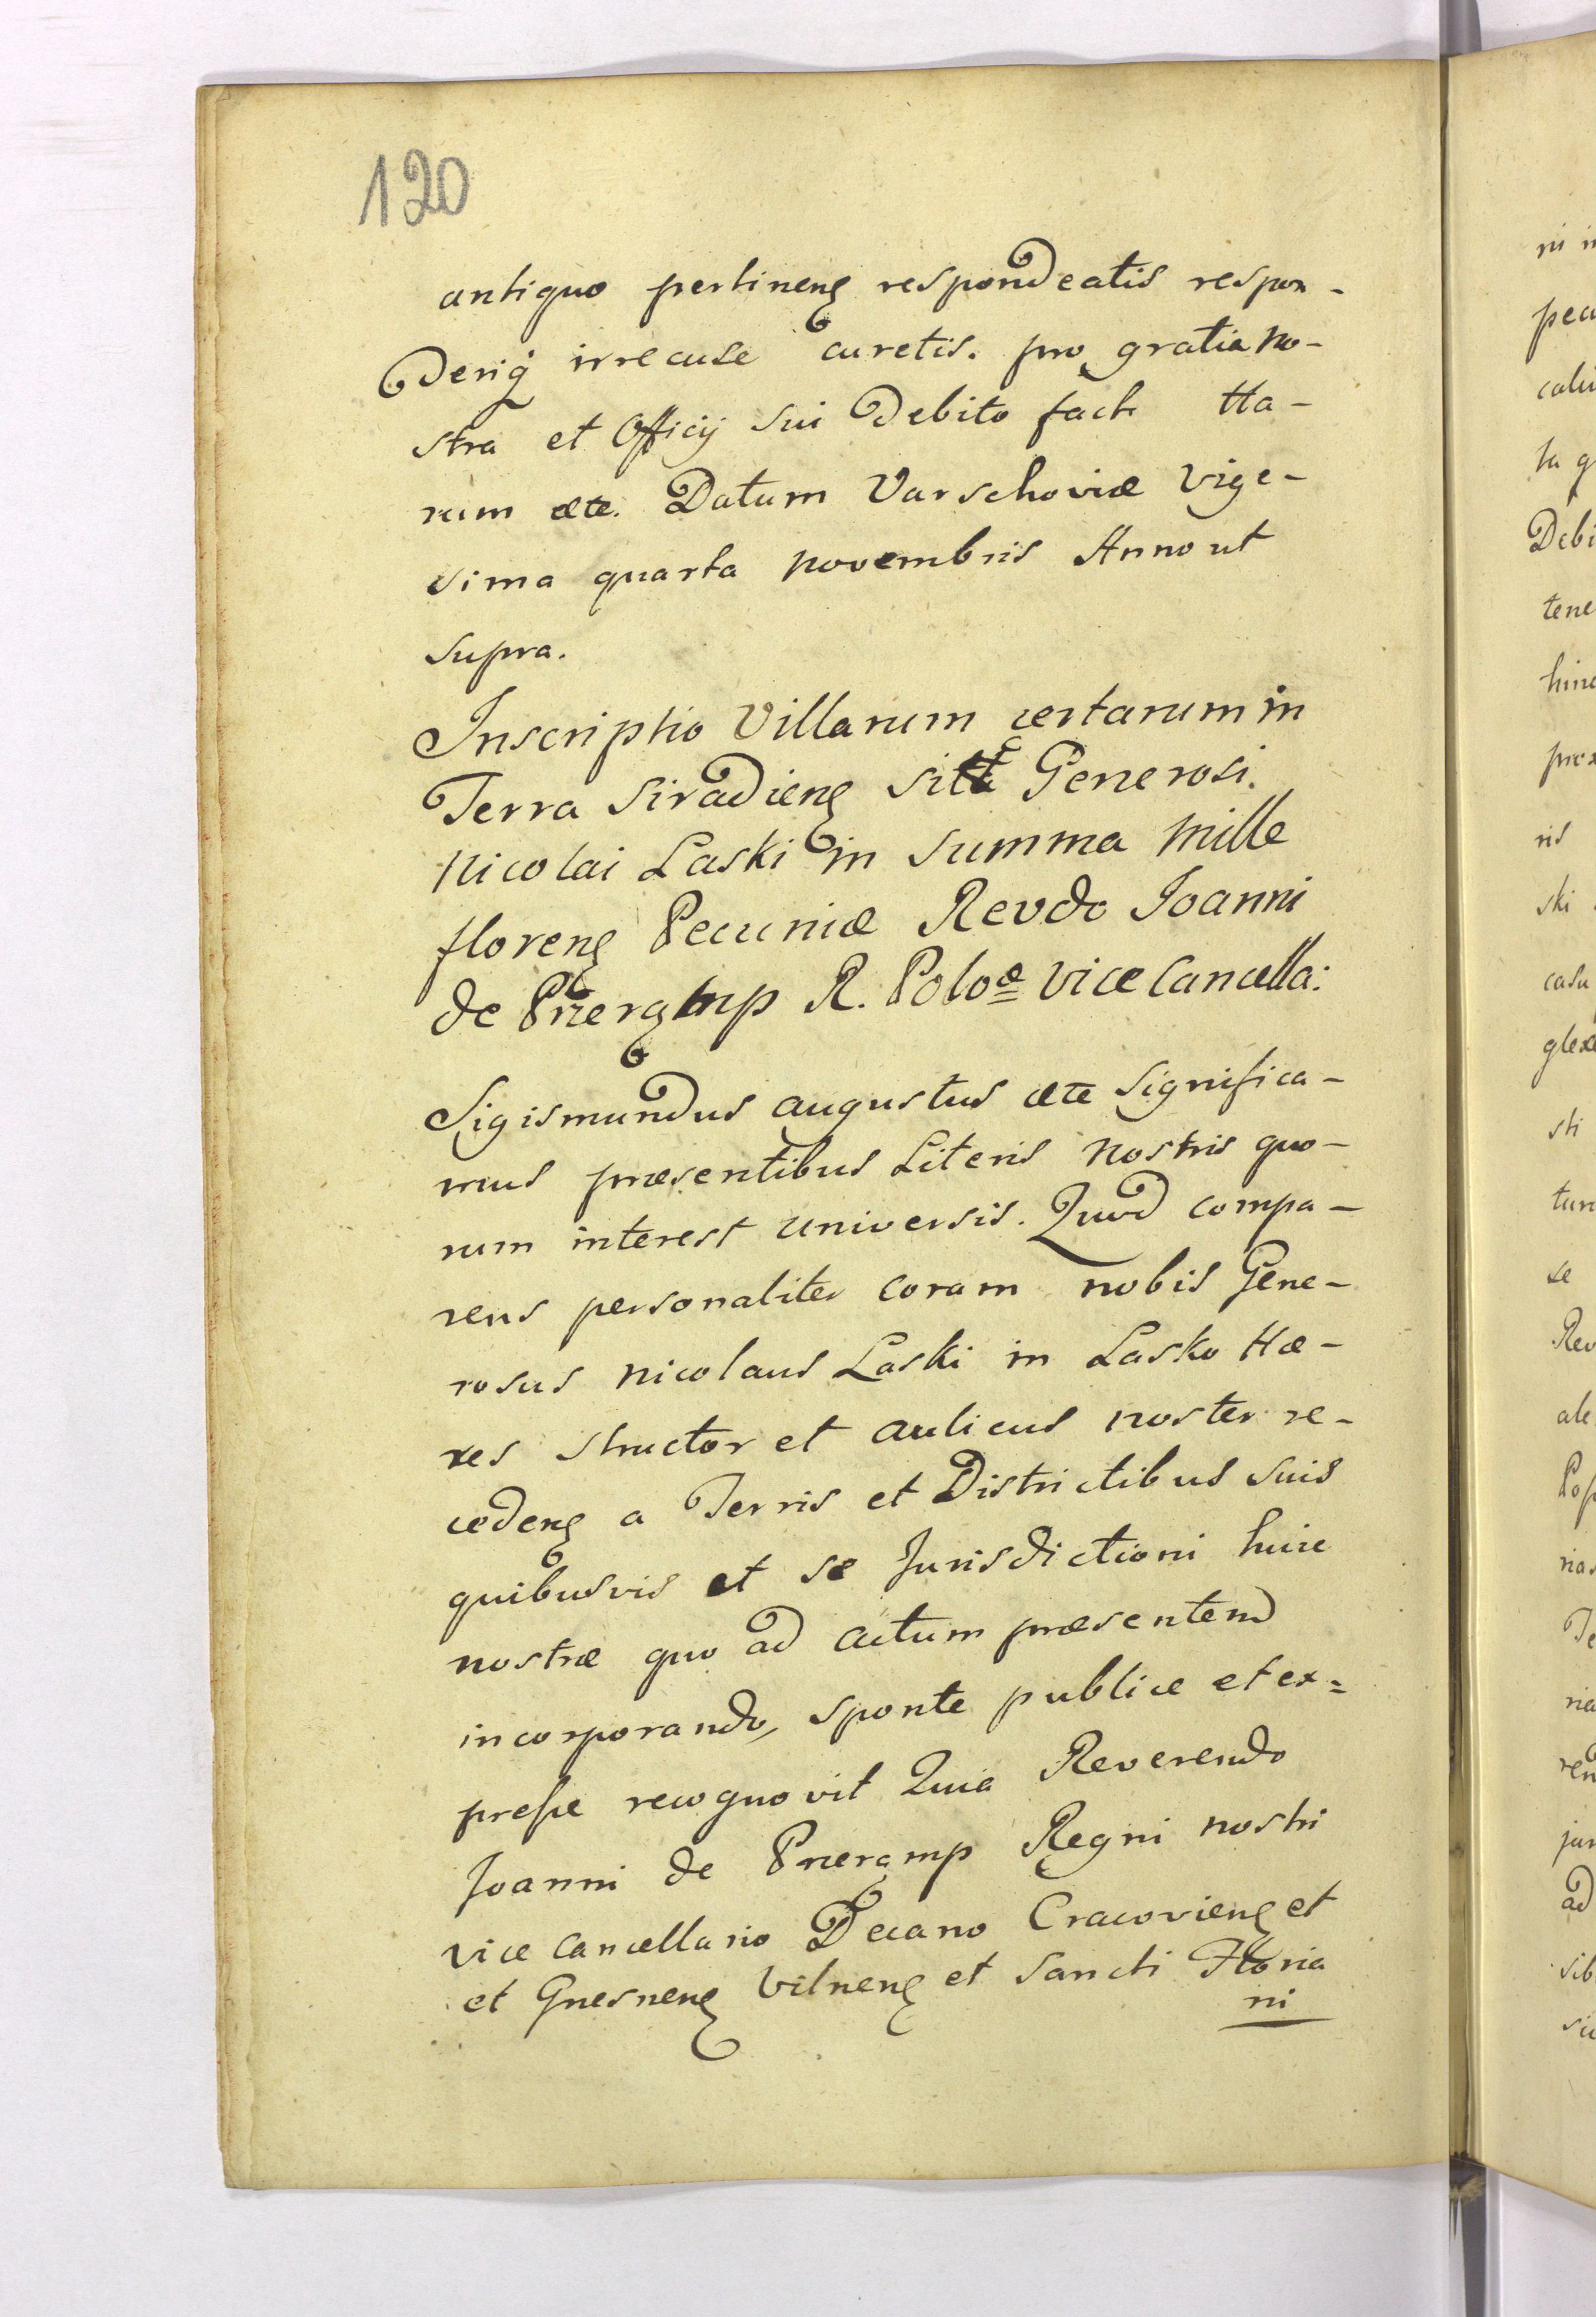 120
antiquo pertineng respondeatis respon-
Deriq irrecuse curetis. pro gratia no-
stra et Officij sui Debito fach Ha-
rum etc. Datum Varschoviæ Vige-
sima quarta novembris Anno ut
supra.
Inscriptio Villarum certarum in
Terra Siradieng Generosi.
Nicolai Laski in summa Mille
floreng Pecuniæ Revdo Joanni
de R. Poloæ Vice Cancella:
Sigismundus augustus etc Significa-
mus præsentibus Literis nostris quo-
rum interest universis. Quod compa-
rens personaliter coram nobis Gene-
rosus Nicolaus Laski in Lasko Hæ-
res structor et aulicus noster re-
cedeng a Terris et Districtibus suis
quibusvis et se Jurisdictioni huic
nostræ quo ad actum præsentem
incorporando, sponte publice et ex=
presse recognovit Quia Reverendo
Joanni de Przerąmp Regni nostri
vice Cancellario Decano Cracovieng et
et Gnesneng Vilneng et Sancti Floria
ni
ni
pecu
Debi
tene
ris
ski
casu
sti
se
Rev
ale
ad